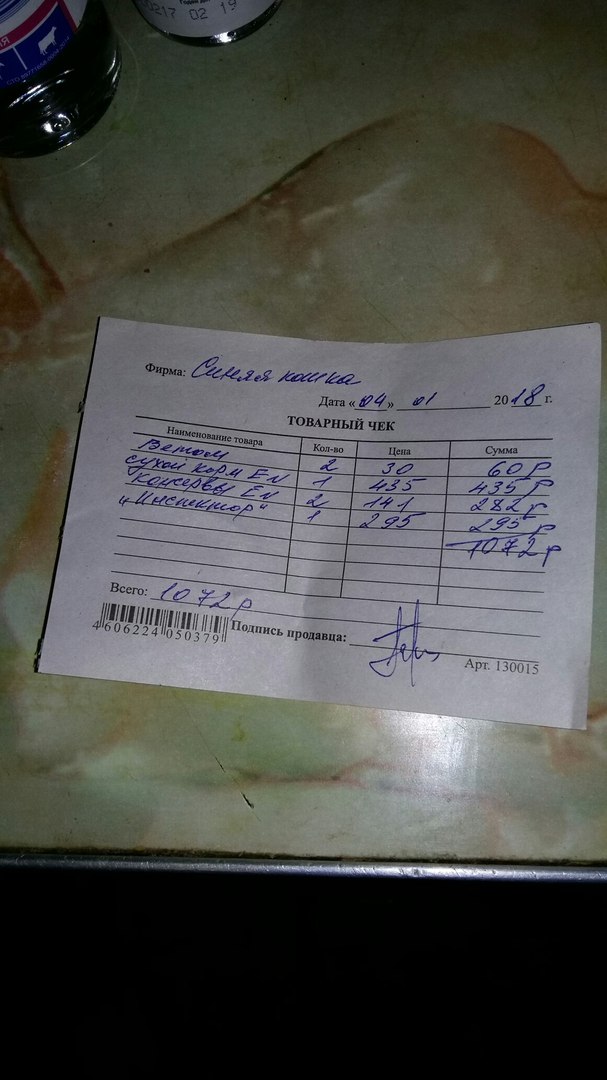 00217 02 19
Фирма: Синяя кошка
Дата «04» 01 2018 г.
ТОВАРНЫЙ ЧЕК
Наименование товара Кол-во Цена Сумма
Ветом 2 30 60р
сухой корм EN 1 435 435р
Консервы EN 2 141 282р
"Инспектор" 1 295 295р
1072р
Всего: 1072р
4 606224 050379
Подпись продавца:
Арт. 130015